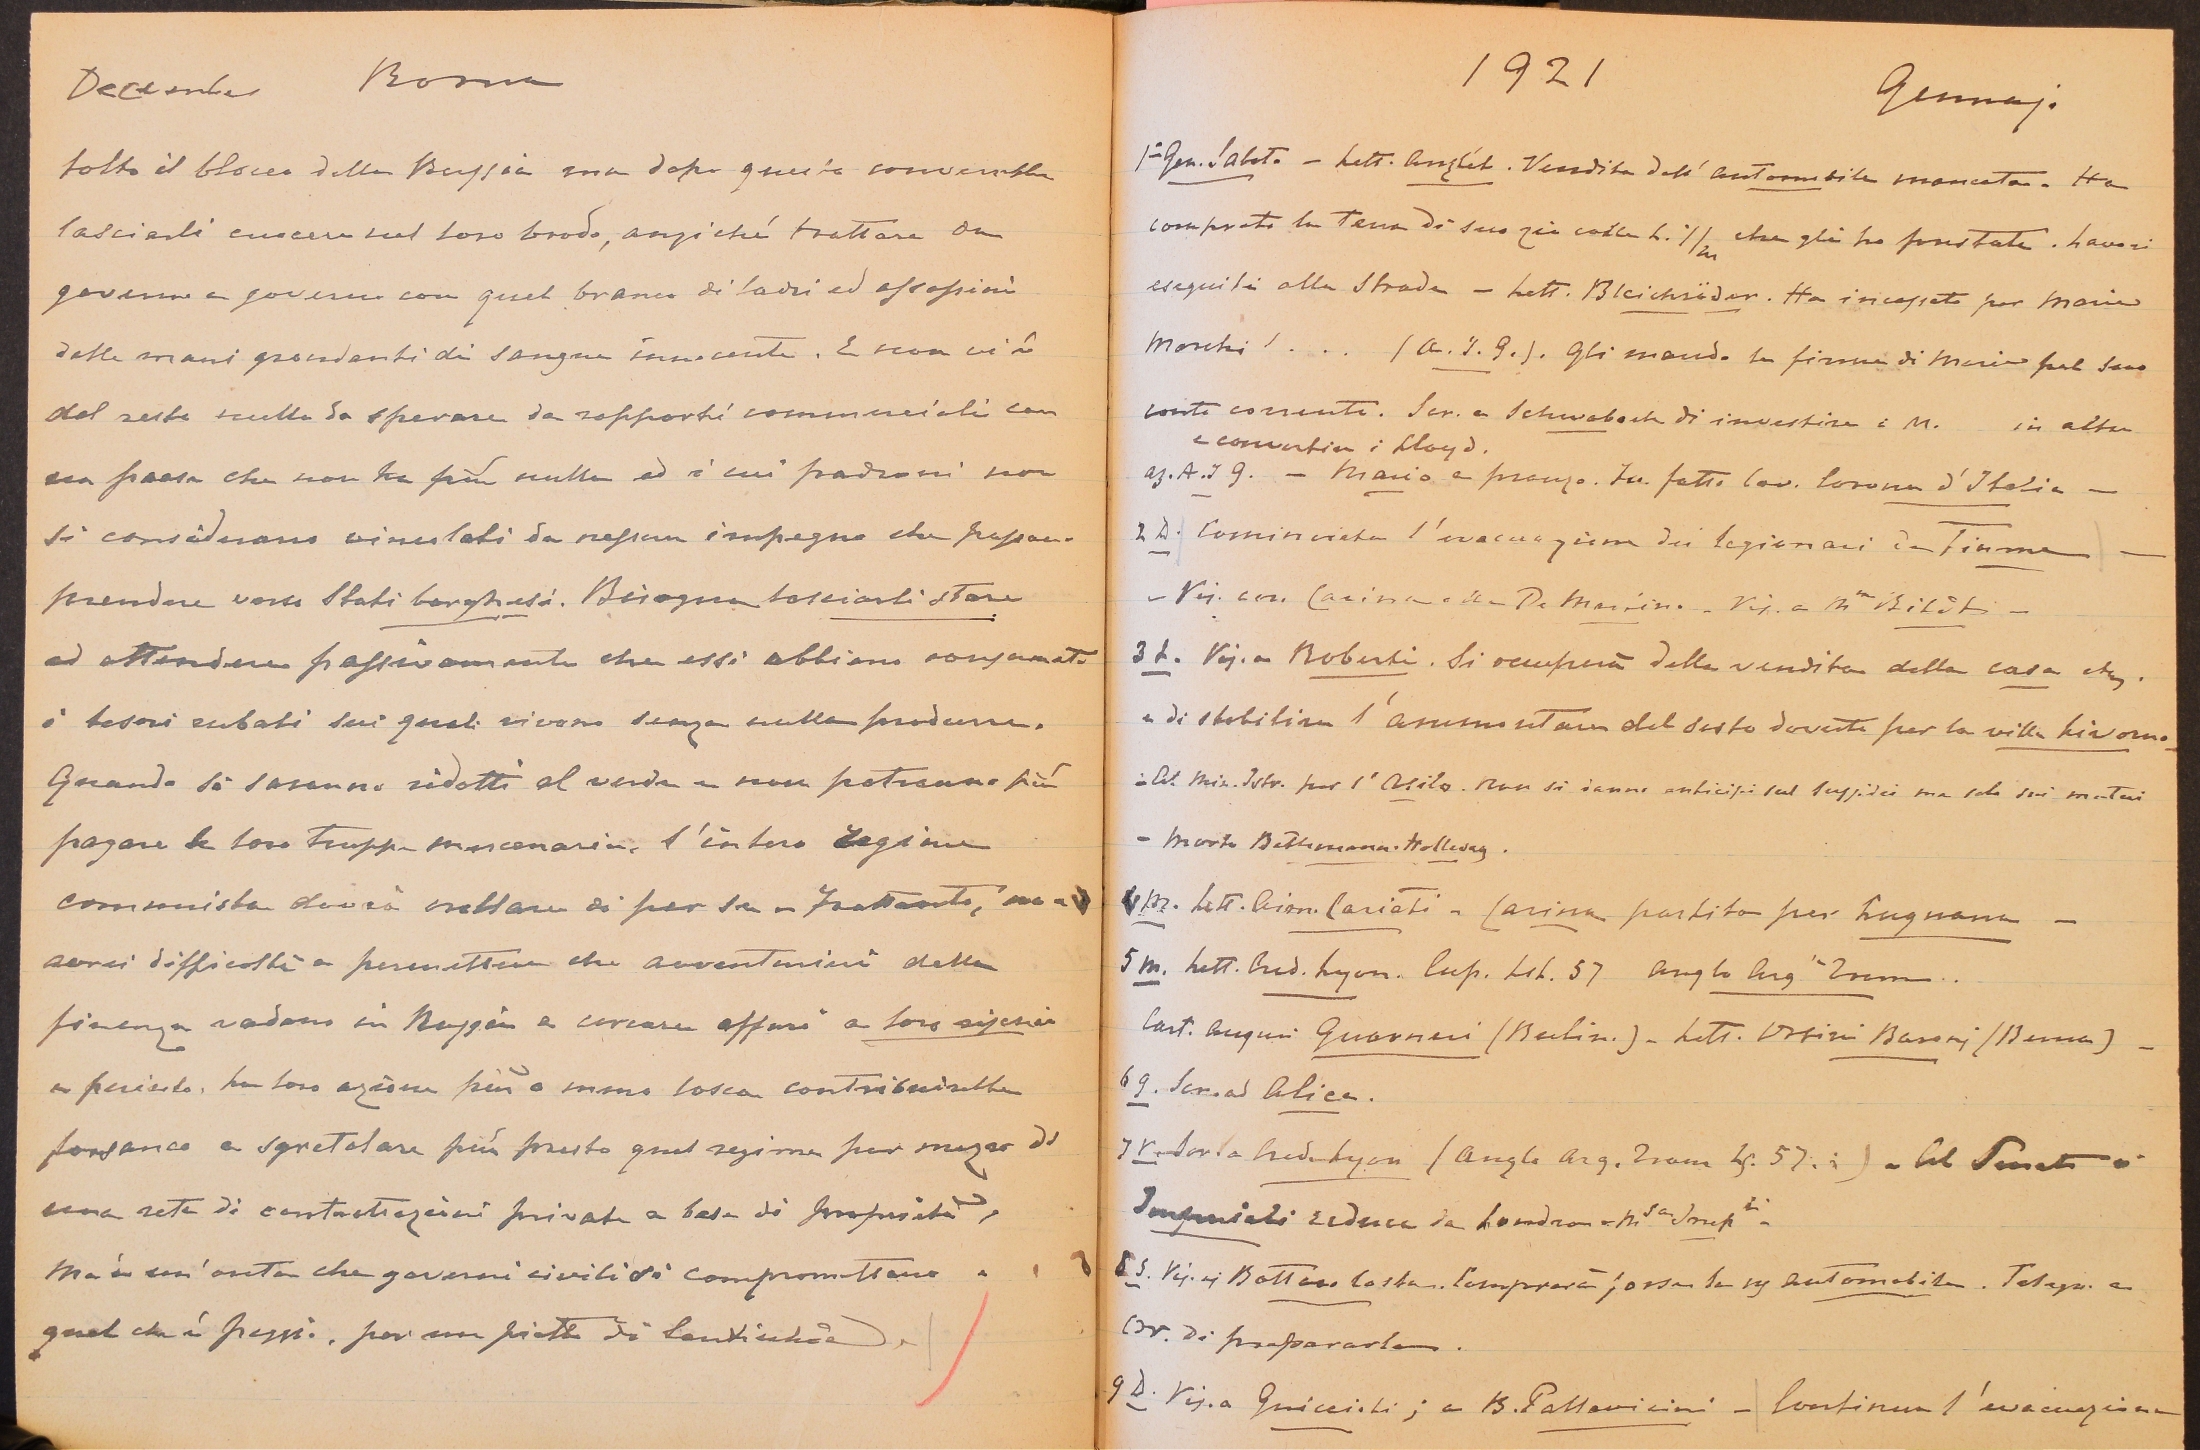 Decembre Roma
tolto il blocco della Russia ma dopo questo converrebbe
lasciarli cuocere nel loro brodo, anziché trattare da
governo a governo con quel branco di ladri ed assassini
dalle mani grondanti di sangue innocente. E non vi è
del resto nulla da sperare da rapporti commerciali con
un paese che non ha più nulla ed i cui padroni non
si considerano vincolati da nessun impegno che possano
prendere verso Stati borghesi. Bisogna lasciarli stare
ed attendere passivamente che essi abbiano consumato
i tesori rubati sui quali vivono senza nulla produrre.
Quando si saranno ridotti al verde e non potranno più
pagare le loro truppe mercenarie, l'intero regime
comunista dovrà crollare di per se - Frattanto, non
avrei difficoltà a permettere che avventurieri della
finanza vadano in Russia a cercare affari a loro rischio
e pericolo. La loro azione più o meno losca contribuirebbe
forsanco a sgretolare più presto quel regime per mezzo di
una rete di contrattazioni private a base di proprietà,
Ma è un'onta che governi civili si compromettano e
quel che è peggio, per un piatto di lenticchie.
1921 Gennaj.
1º Gen. Sabato - Lett. Anglét. Vendita dell'automobile mancata. Ha
comprato la terra di suo zio colle L. che gli ho prestate. Lavori
eseguiti alla strada - Lett. Bleichröder. Ha incassato per Mario
Marchi ... (A.I.G.). Gli mando la firma di Mario pel suo
conto corrente. Scr. a Schwabach di investire i M. in altre
e convertire i Lloyd.
az. A.I G. - Mario a pranzo. Fu fatto Cav. Corona d'Italia -
2 D. Cominciata l'evacuazione dei legionari da Fiume -
- Vis. con Carina alla De Martino - Vis. a Mme Bildt -
3 L. Vis. a Roberti. Si occuperà della vendita della casa etc.
e di stabilire l'ammontare del sesto dovuto per la villa Livorno
- Al Min. Istr. per l'Asilo. Non si danno anticipi sul sussidio ma solo sui mutui
- Morto Bethmann-Hollweg.
4 M. Lett. Cariati - Carina partita per Lugnano -
5 M. Lett. Cred. Lyon. Cup. Lst. 57 Anglo Arg. Tram..
Cart. auguri Guarneri (Berlin.) - Lett. Orsini Baroni (Berna) -
6 G. Scr. ad Alice.
7 V. Scr. a Cred. Lyon (Anglo Arg. Tram Ls. 57.) - Al Senato -
Imperiali reduce da Londra -
8 S. Vis. Bottaro Costa. Comprerà forse la automobile. Telegr. a
Car. di prepararla.
9 D. Vis. a Guiccioli; a B. Pallavicini - Continua l'evacuazione